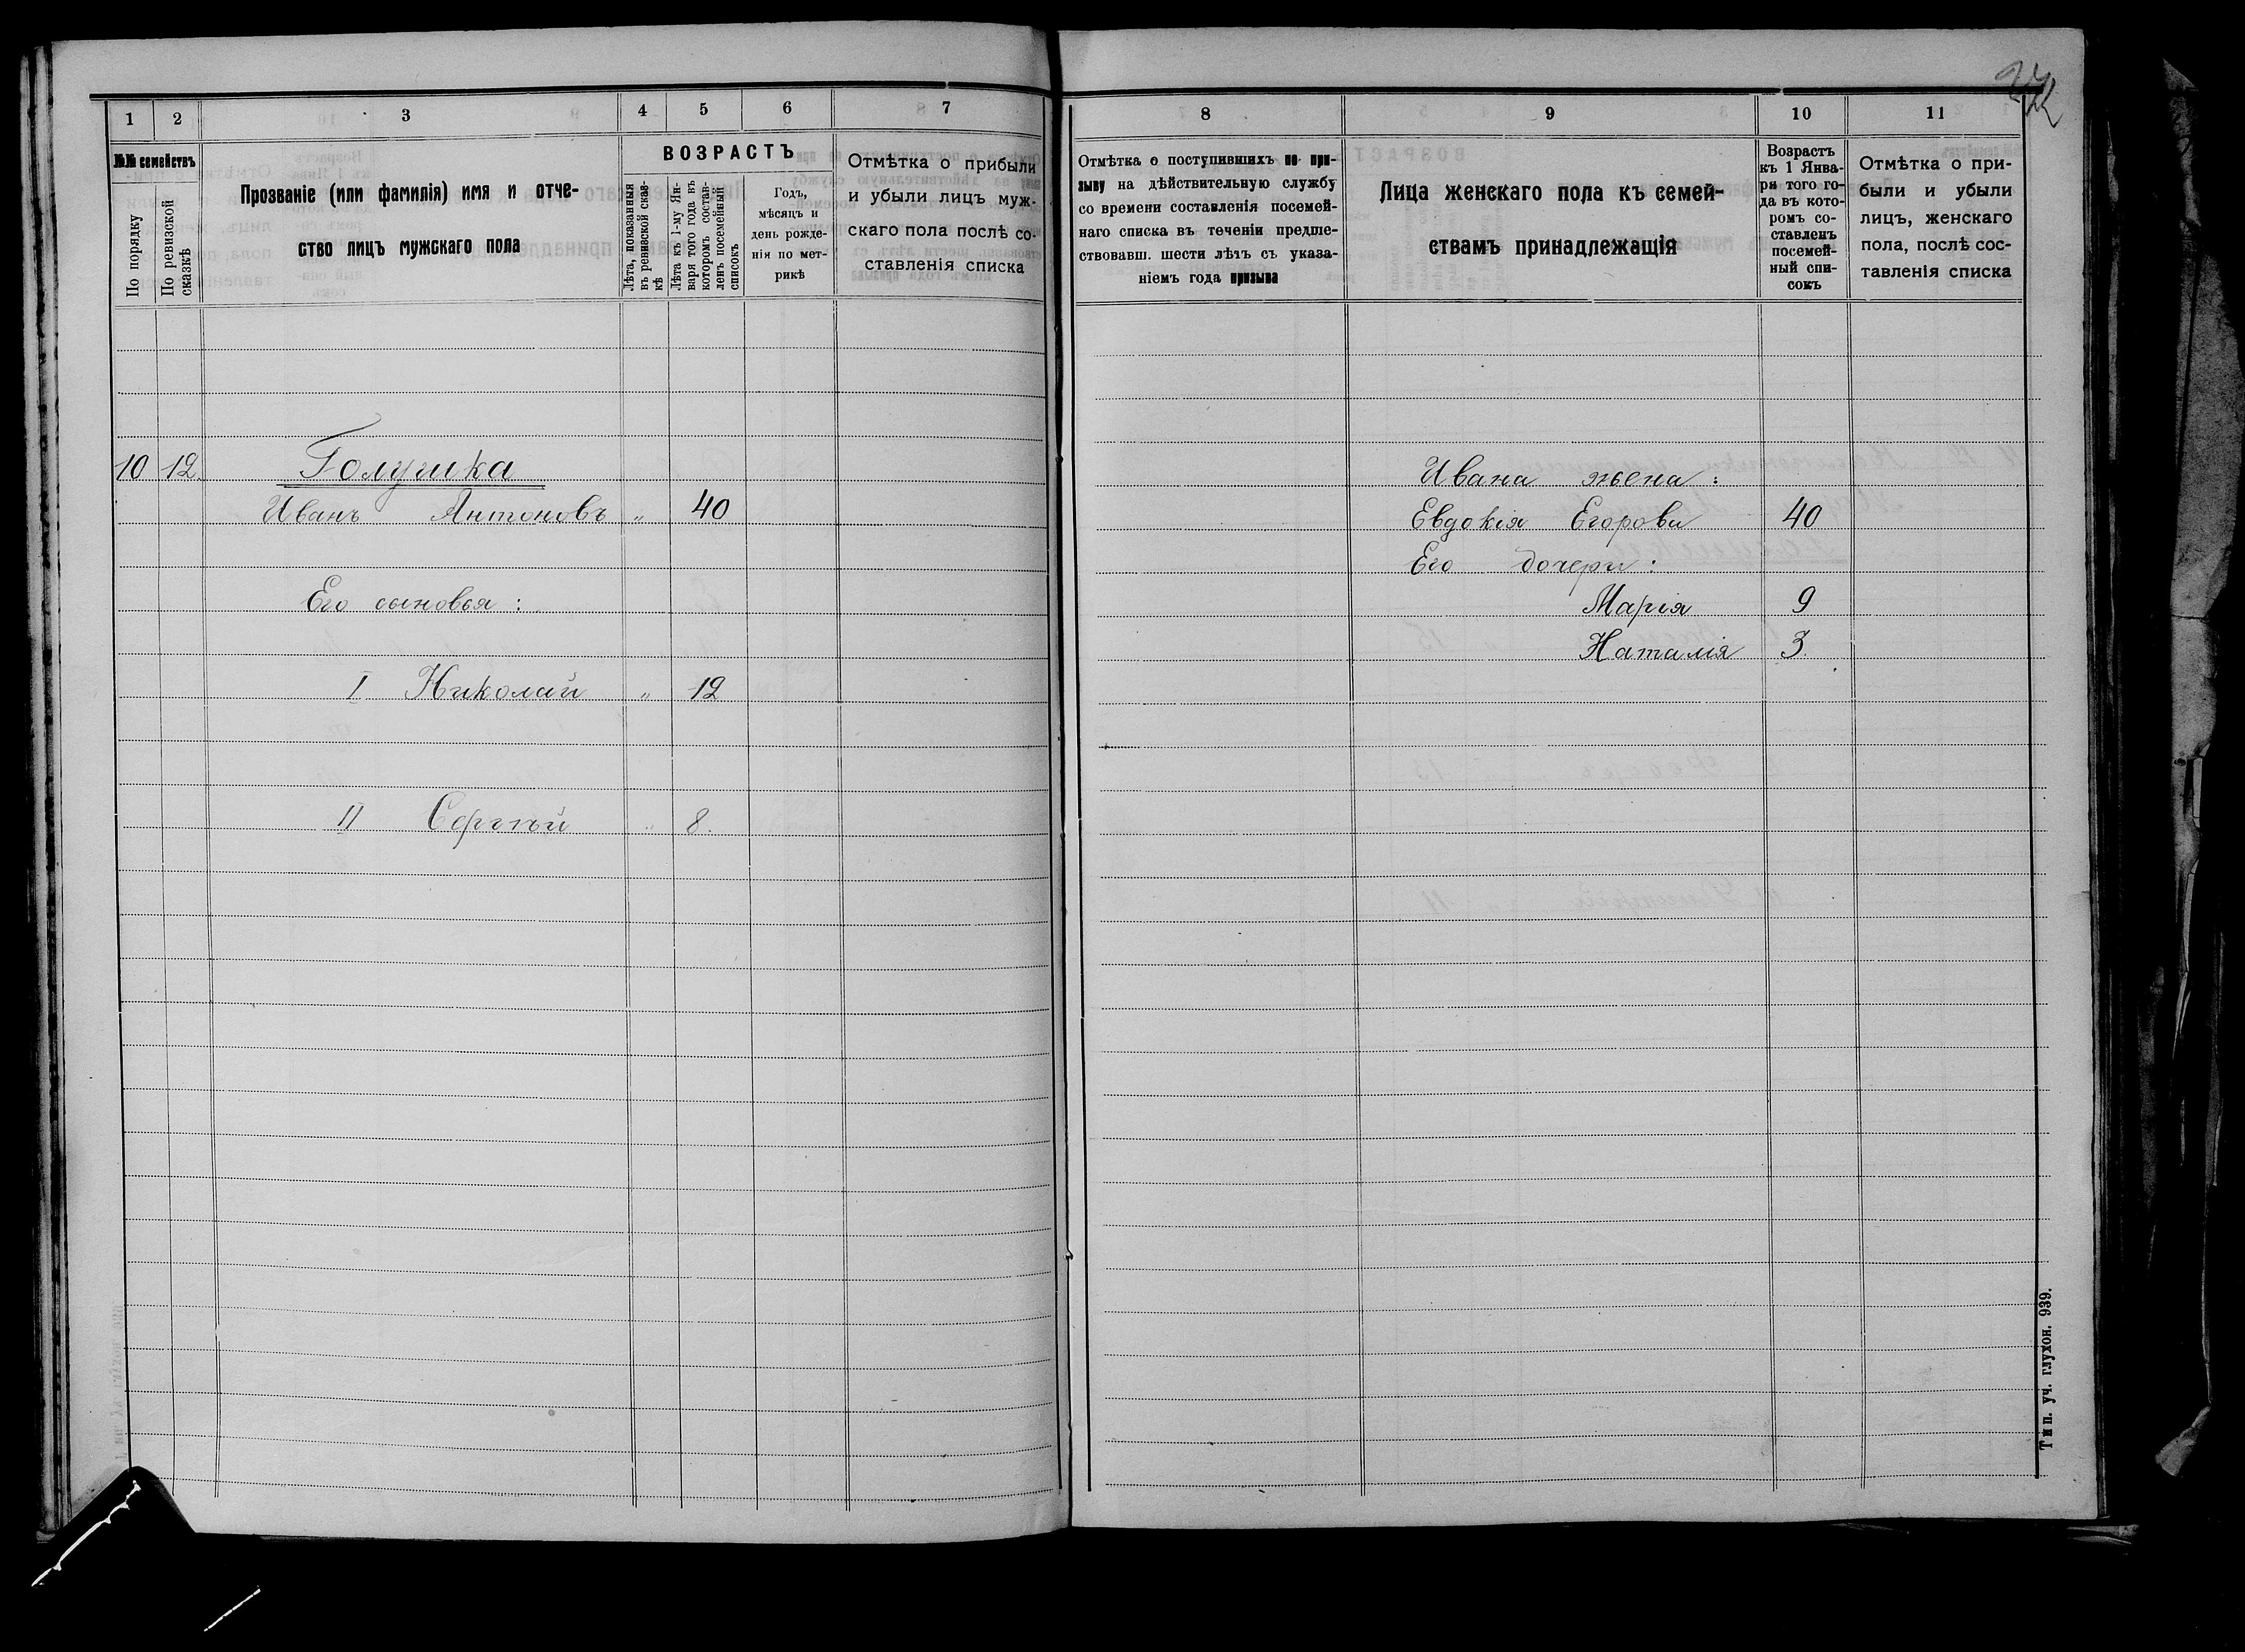 1 2 3 4 5 6 7
№№ семействъ
По порядку
По ревизской сказкѣ
Прозваніе (или фамилія) имя и отче-
ство лицъ мужскаго пола
ВОЗРАСТЪ
Лѣта, показанныя
въ ревизской сказ-
кѣ
Лѣта къ 1-му Ян-
варя того года въ
которомъ состав-
ленъ посемейный
списокъ
Годъ,
мѣсяцъ и
день рожде-
нія по мет-
рикѣ
Отмѣтка о прибыли
и убыли лицъ муж-
скаго пола послѣ со-
ставленія списка
10 12. Голушка
Иванъ Антоновъ „ 40
Его сыновья:
I Николай „ 12
II Сергѣй „ 8.
8 9 10 11
Отмѣтка о поступившихъ по при-
зыву на дѣйствительную службу
со времени составленія посемей-
наго списка въ теченіи предше-
ствовавш. шести лѣтъ съ указа-
ніемъ года призыва
Лица женскаго пола къ семей-
ствамъ принадлежащія
Возрастъ
къ 1 Янва-
ря того го-
да въ кото-
ромъ со-
ставленъ
посемей-
ный спи-
сокъ
Отмѣтка о при-
были и убыли
лицъ, женскаго
пола, послѣ сос-
тавленія списка
Ивана жена:
Евдокія Егорова 40
Его дочери:
Марія 9
Наталія 3.
Тип. уч. глухон. 939.